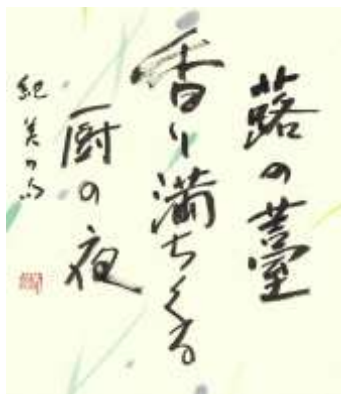 蕗の薹
香り満ちくる
厨の夜